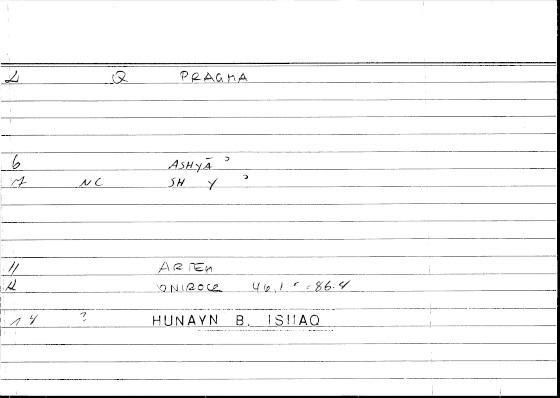 Q PRAGMA
6 ASHYĀ ʾ
NC SH Y ʾ
11 ARTEM
ONIROCR 46,1 - 86.4
14 ? HUNAYN B. ISHAQ